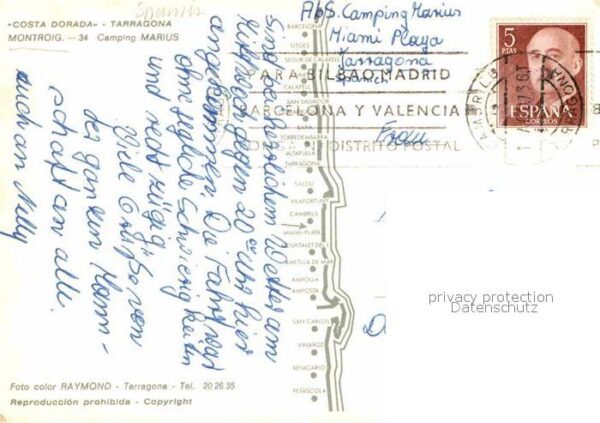 Spanien
"COSTA DORADA" - TARRAGONA
MONTROIG. - 34 Camping MARIUS
Abs. Camping Marius
Miami Playa
Tarragona
Spanien
5
PTAS
ESPAÑA
CORREOS
PARA BILBAO, MADRID
BARCELONA Y VALENCIA
PONGA DISTRITO POSTAL
CAMBRILS
Sind bei Wetter am
gegen 20 Uhr hier
angekommen. Die Fahrt war
ohne jegliche Schwierigkeiten
und recht zügig
Viele Grüße von
der ganzen Mann-
schaft an alle.
auch an Nelly
BARCELONA
SITGES
SEGUR DE CALAFELL
CALAFELL
SAN SALVADOR
BARA
TORREDEMBARRA
ALTAFULLA
TARRAGONA
SALOU
VILAFORTUNY
CAMBRILS
MIAMI-PLAYA
HOSPITALET DEL I.
AMETLLA DE MAR
AMPOLLA
AMPOSTA
SAN CARLOS
VINAROZ
BENICARLO
PEÑISCOLA
privacy protection
Datenschutz
Foto color RAYMOND - Tarragona - Tel. 20 26 35
Reproducción prohibida - Copyright